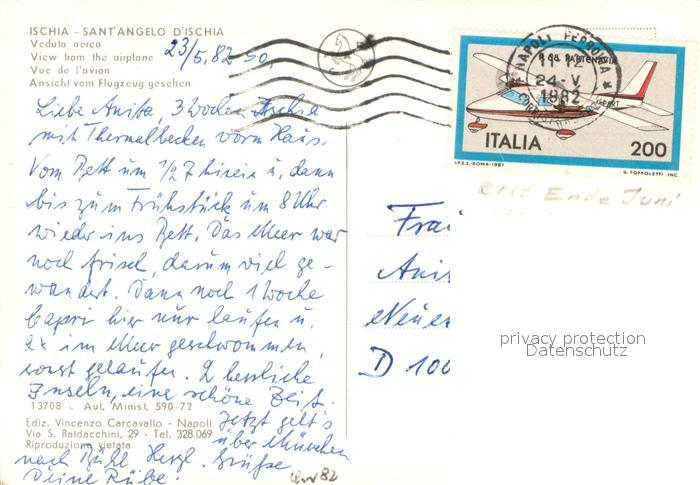 ISCHIA - SANT'ANGELO D'ISCHIA
Veduta aerea
View from the airplane
Vue de l'avion
Ansicht vom Flugzeug gesehen
23/5.82 So,
Liebe Anita, 3 Wochen Ischia
mit Thermalbecken vorm Haus.
Vom Bett um 1/27 hinein u. dann
bis zum Frühstück um 8 Uhr
wieder ins Bett. Das Meer war
noch frisch, darum viel ge-
wandert. Dann noch 1 Woche
Capri hier nur laufen u.
2x im Meer geschwommen,
sonst gelaufen. 2 herrliche
Inseln, eine schöne Zeit.
13708-c Aut. Minist. 590-72
Ediz. Vincenzo Carcavallo - Napoli
Via S. Baldacchini, 29 - Tel. 328.069
Riproduzione vietata
Jetzt geht's
über München
nach Bühl Herzl. Grüße
Deine Rübe.
NAPOLI FERROVIA
24-V
1982
P 68 PARTENAVIA
I-PART
ITALIA 200
I.P.Z.S.-ROMA-1981
G. TOFFOLETTI INC.
erst Ende Juni
Frau
Ani
Neue
D 100
privacy protection
Datenschutz
82